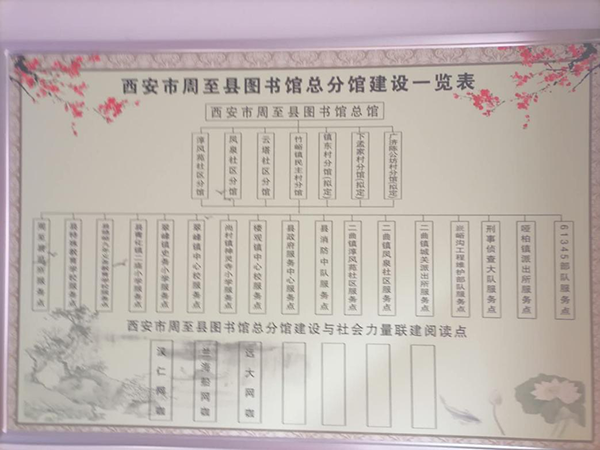 西安市周至县图书馆总分馆建设一览表
西安市周至县图书馆总馆
淳风苑社区分馆
凤泉社区分馆
云塔社区分馆
竹峪镇民主村分馆
镇东村分馆(拟定)
下孟家村分馆(拟定)
县特殊教育学校服务点
翠峰镇史务小学服务点
翠峰镇中心校服务点
尚村镇神灵寺小学服务点
楼观镇中心校服务点
县政府服务中心服务点
县消防中队服务点
二曲镇淳风苑社区服务点
二曲镇凤泉社区服务点
二曲镇城关派出所服务点
刑事侦查大队服务点
哑柏镇派出所服务点
61345部队服务点
西安市周至县图书馆总分馆建设与社会力量联建阅读点
远大网咖